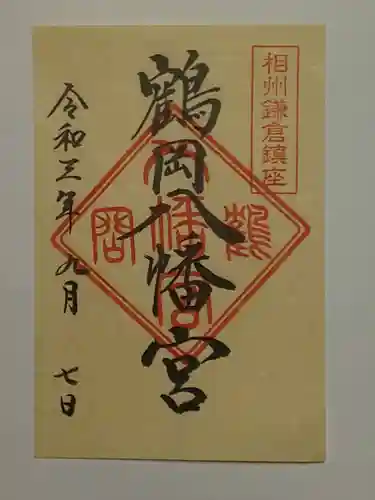 相州鎌倉鎮座
鶴岡八幡宮
鶴岡八幡宮
令和三年九月七日